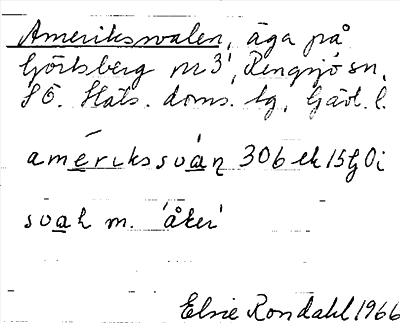 Ameriksvalen, äga på
Görtsberg nr 3, Rengsjö sn,
S Ö. Häls. doms. lg, Gävl. l.
amérikssván 306 ek 15 G Oi
svah m. 'åker'
Elsie Rondahl 1966